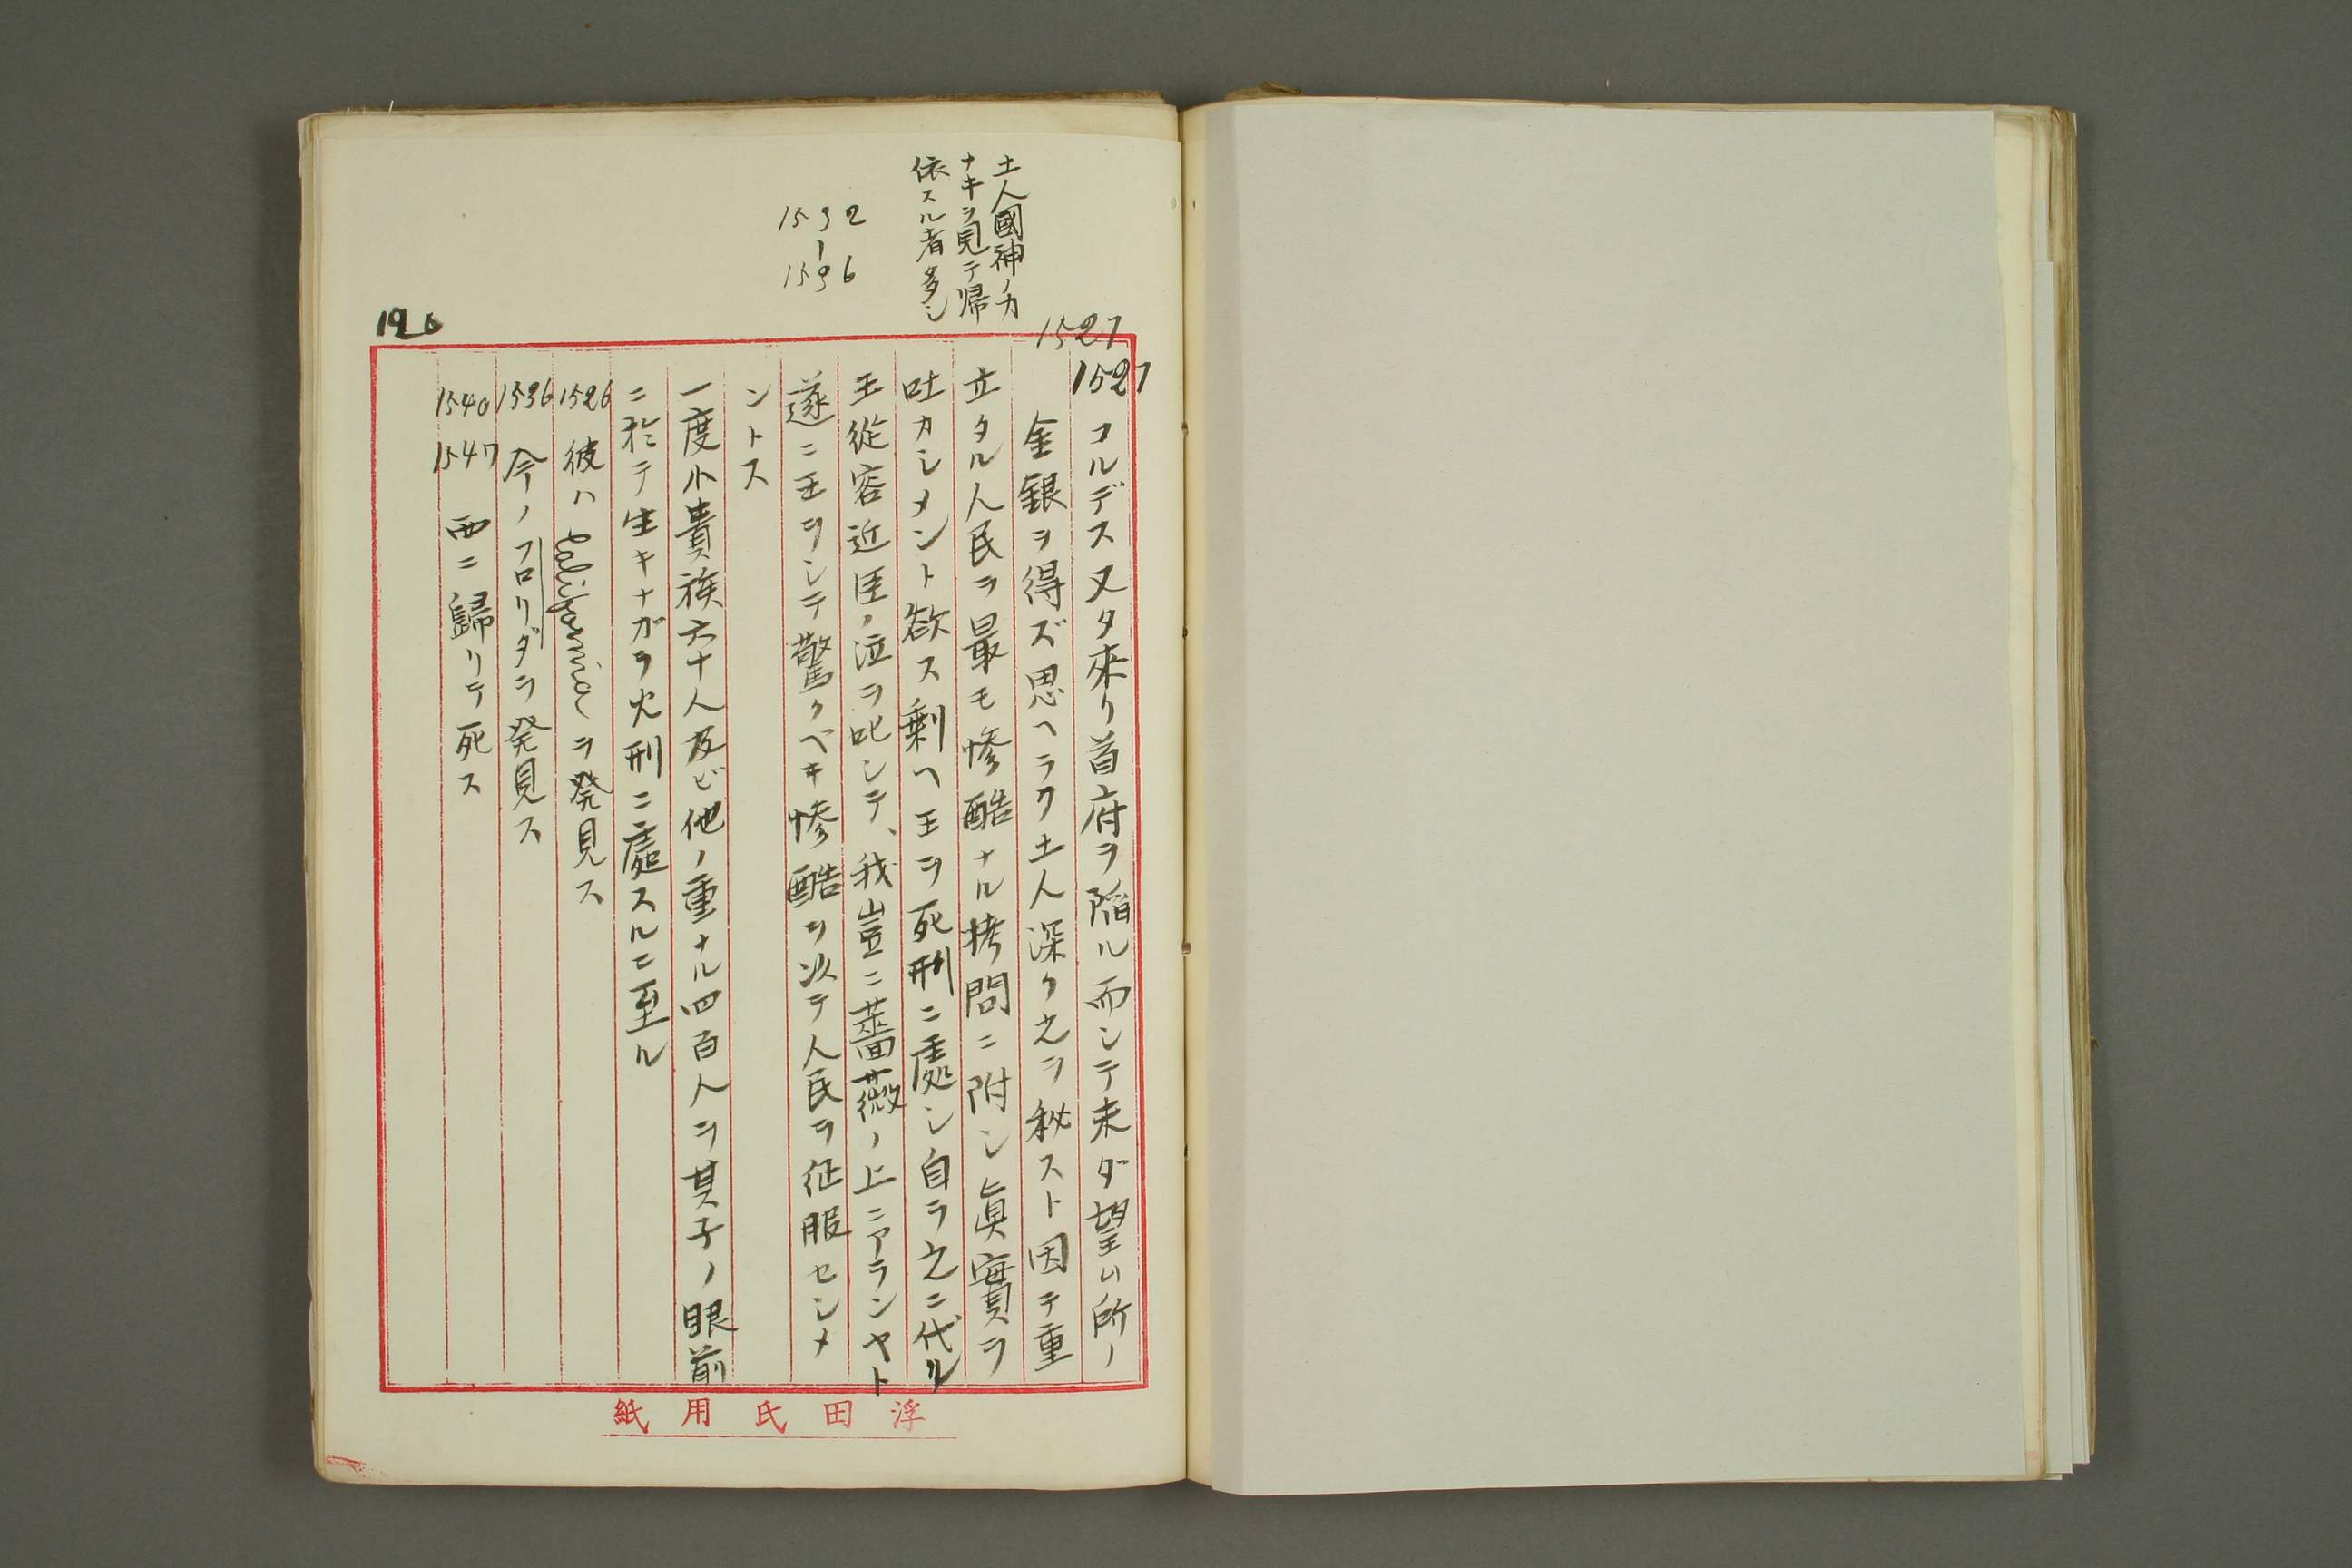 土人國神ノ力
ナキヲ見テ帰
依スル者多シ
1532
1596
126
1527
1527 コルデス又タ來リ首府ヲ陥ル而シテ未ダ望ム所ノ
金銀ヲ得ズ思ヘラク土人深ク之ヲ秘スト因テ重
立タル人民ヲ最モ惨酷ナル拷問ニ附シ眞實ヲ
吐カシメント欲ス剰ヘ王ヲ死刑ニ處シ自ラ之ニ代ル
王従容近臣ノ泣ヲ叱シテ、我豈ニ薔薇ノ上ニアランヤト
遂ニ王ヲシテ驚クベキ惨酷ヲ以テ人民ヲ征服セシメ
ントス
一度小貴族六十人及ビ他ノ重ナル四百人ヲ其子ノ眼前
ニ於テ生キナガラ火刑ニ處スルニ至ル
1526 彼ハ California ヲ発見ス
1536 今ノフロリダヲ発見ス
1540 1547 西ニ歸リテ死ス
浮田氏用紙